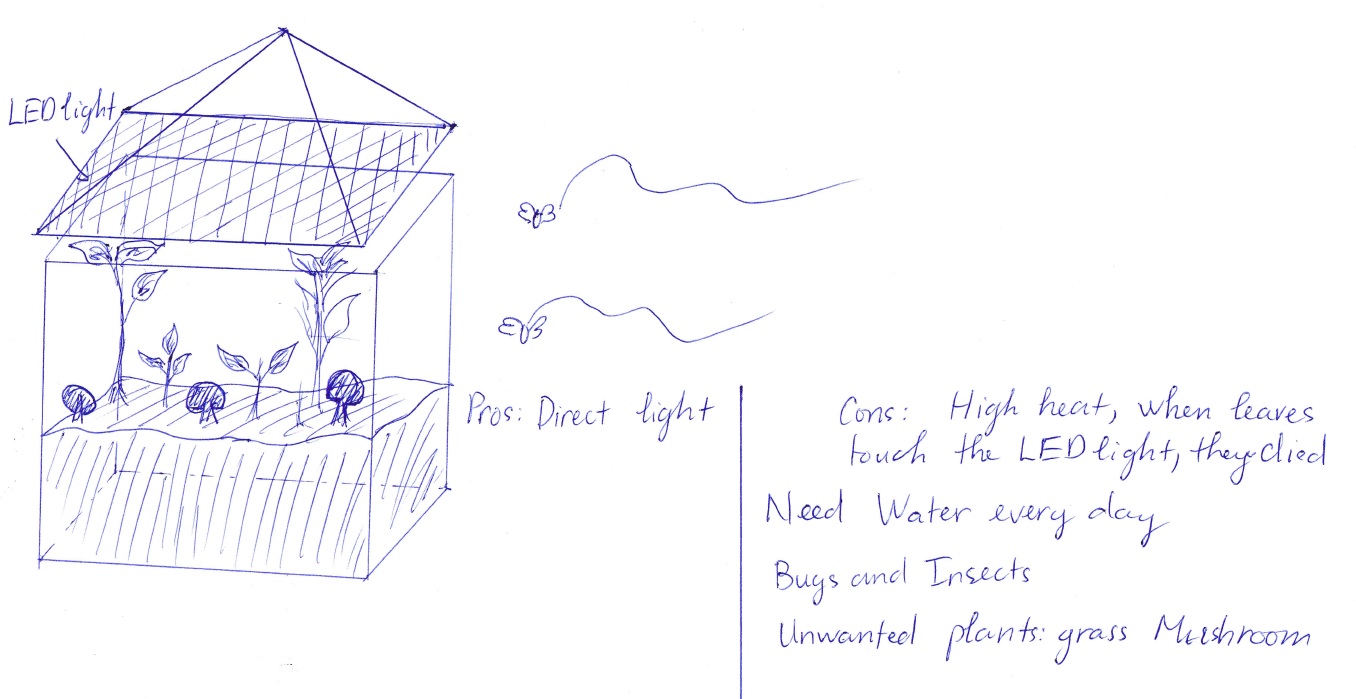 LED light
Pros: Direct light
Cons: High heat, when leaves
touch the LED light, they died
Need Water every day
Bugs and Insects
Unwanted plants: grass Mushroom